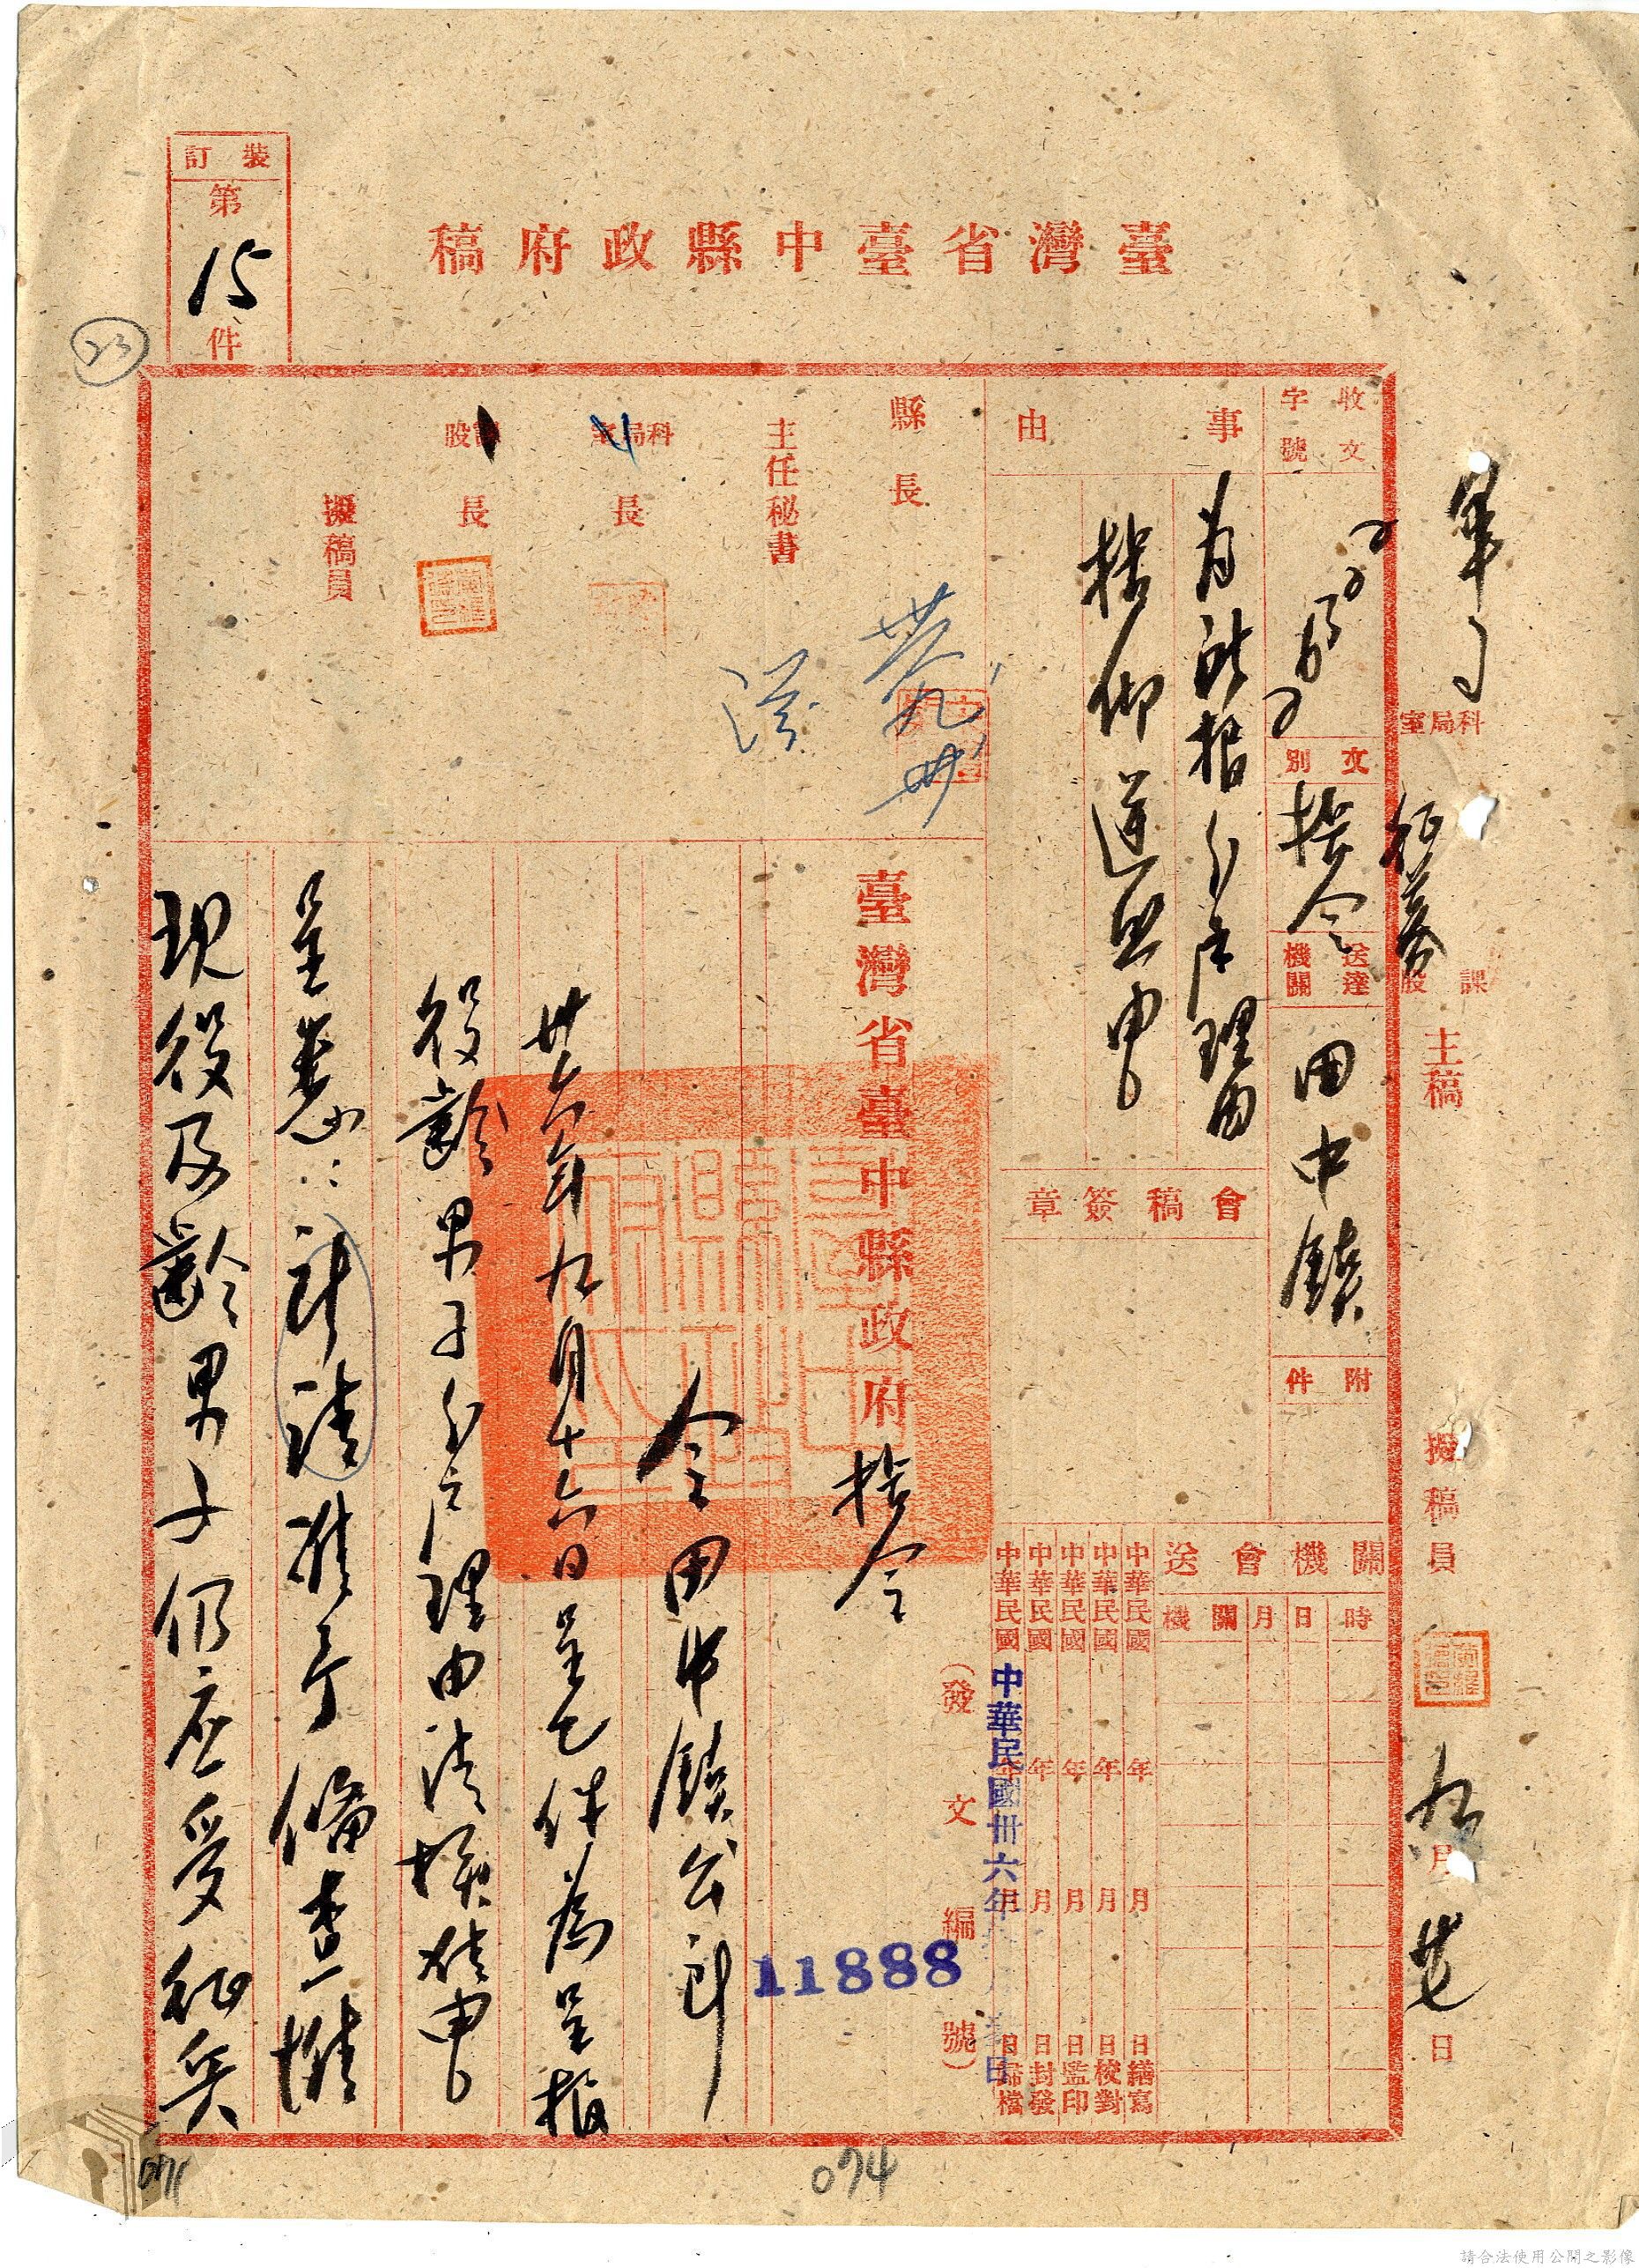 臺灣省臺中縣政府稿
裝訂
第
15
件
23
科局室
課股
主稿
擬稿員
九月 日
收文
字號
文別
指令
送達機關
田中鎮
附件
事由
為 報分戶理由
指仰遵照由
會稿簽章
關機會送
時日月關機
中華民國 年 月 日繕寫
中華民國 年 月 日校對
中華民國 年 月 日監印
中華民國 年 月 日封發
中華民國 年 月 日歸檔
中華民國卅六年
(發文編號)
11888
縣長
主任秘書
科局室長
課股長
擬稿員
臺灣省臺中縣政府 指令
令田中鎮公所
卅六年九月十六日呈乙件為呈報
役齡男子分戶理由請 由
呈悉 請准予備查惟
現役及齡男子仍应受征兵
074
請合法使用公開之影像